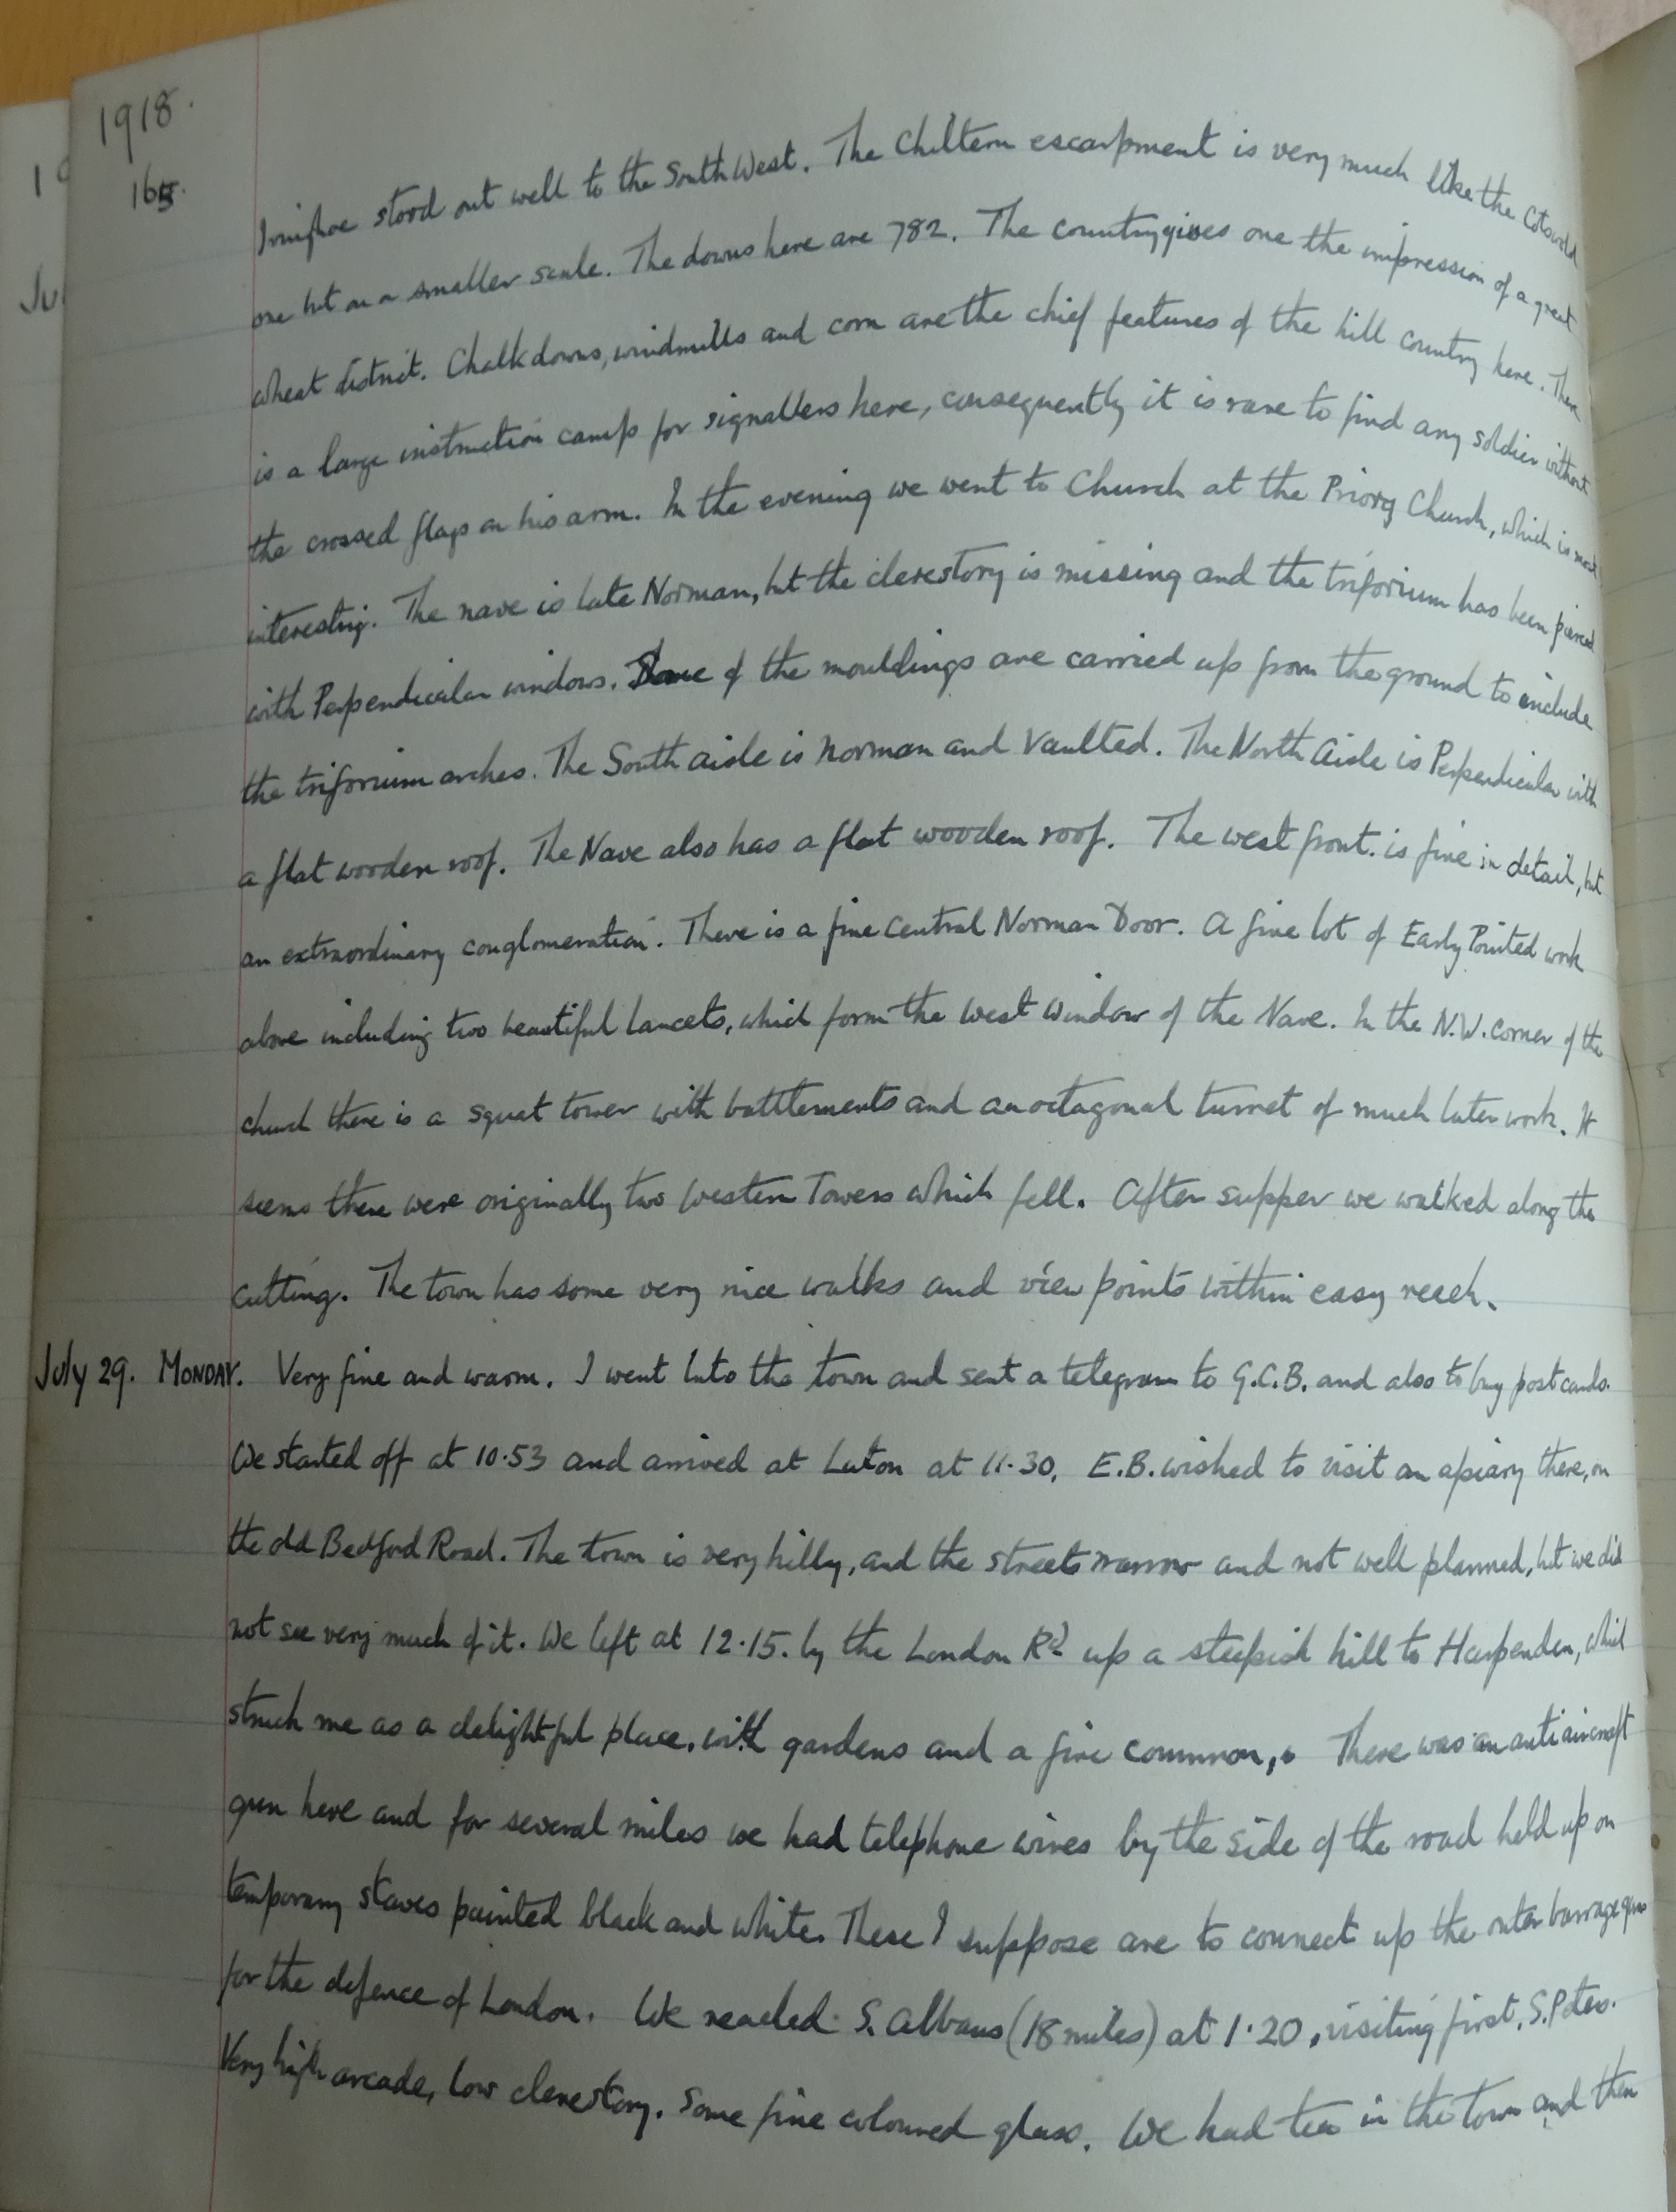 1918.
165.
Ivinghoe stood out well to the South West. The Chiltern escarpment is very much like the Cotswold
one but on a smaller scale. The downs here are 782. The country gives one the impression of a great
wheat district. Chalk downs, windmills and corn are the chief features of the hill country here. There
is a large instruction camp for signallers here, consequently it is rare to find any soldier without
the crossed flags on his arm. In the evening we went to Church at the Priory Church, which is most
interesting. The nave is late Norman, but the clerestory is missing and the triforium has been pierced
with Perpendicular windows. Some of the mouldings are carried up from the ground to include
the triforium arches. The South aisle is Norman and Vaulted. The North Aisle is Perpendicular with
a flat wooden roof. The Nave also has a flat wooden roof. The west front. is fine in detail, but
an extraordinary conglomeration. There is a fine central Norman Door. A fine lot of Early Pointed work
above including two beautiful lancets, which form the West Window of the Nave. In the N.W. corner of the
church there is a squat tower with battlements and an octagonal turret of much later work. It
seems there were originally two Western Towers which fell. After supper we walked along the
cutting. The town has some very nice walks and view points within easy reach.
July 29. MONDAY. Very fine and warm. I went into the town and sent a telegram to G.C.B. and also to buy post cards.
We started off at 10.53 and arrived at Luton at 11.30. E.B. wished to visit an apiary there, on
the old Bedford Road. The town is very hilly, and the streets narrow and not well planned, but we did
not see very much of it. We left at 12.15. by the London Rd up a steepish hill to Harpenden, which
struck me as a delightful place, with gardens and a fine common,. There was an anti aircraft
gun here and for several miles we had telephone wires by the side of the road held up on
temporary staves painted black and white. These I suppose are to connect up the outer barrage guns
for the defence of London. We reached S. Albans (18 miles) at 1.20, visiting first, S. Peters.
Very high arcade, low clerestory. Some fine coloured glass. We had tea in the town and then